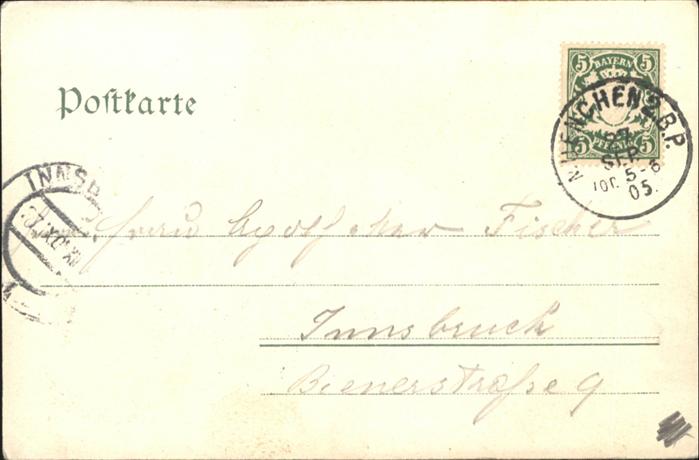 5 BAYERN 5
5 PFENNIG 5
Postkarte
MUENCHEN 2 B.P.
27
SEP.
5-6
05.
INNSB
Frau Fischer
Innsbruck
Bienerstraße 9